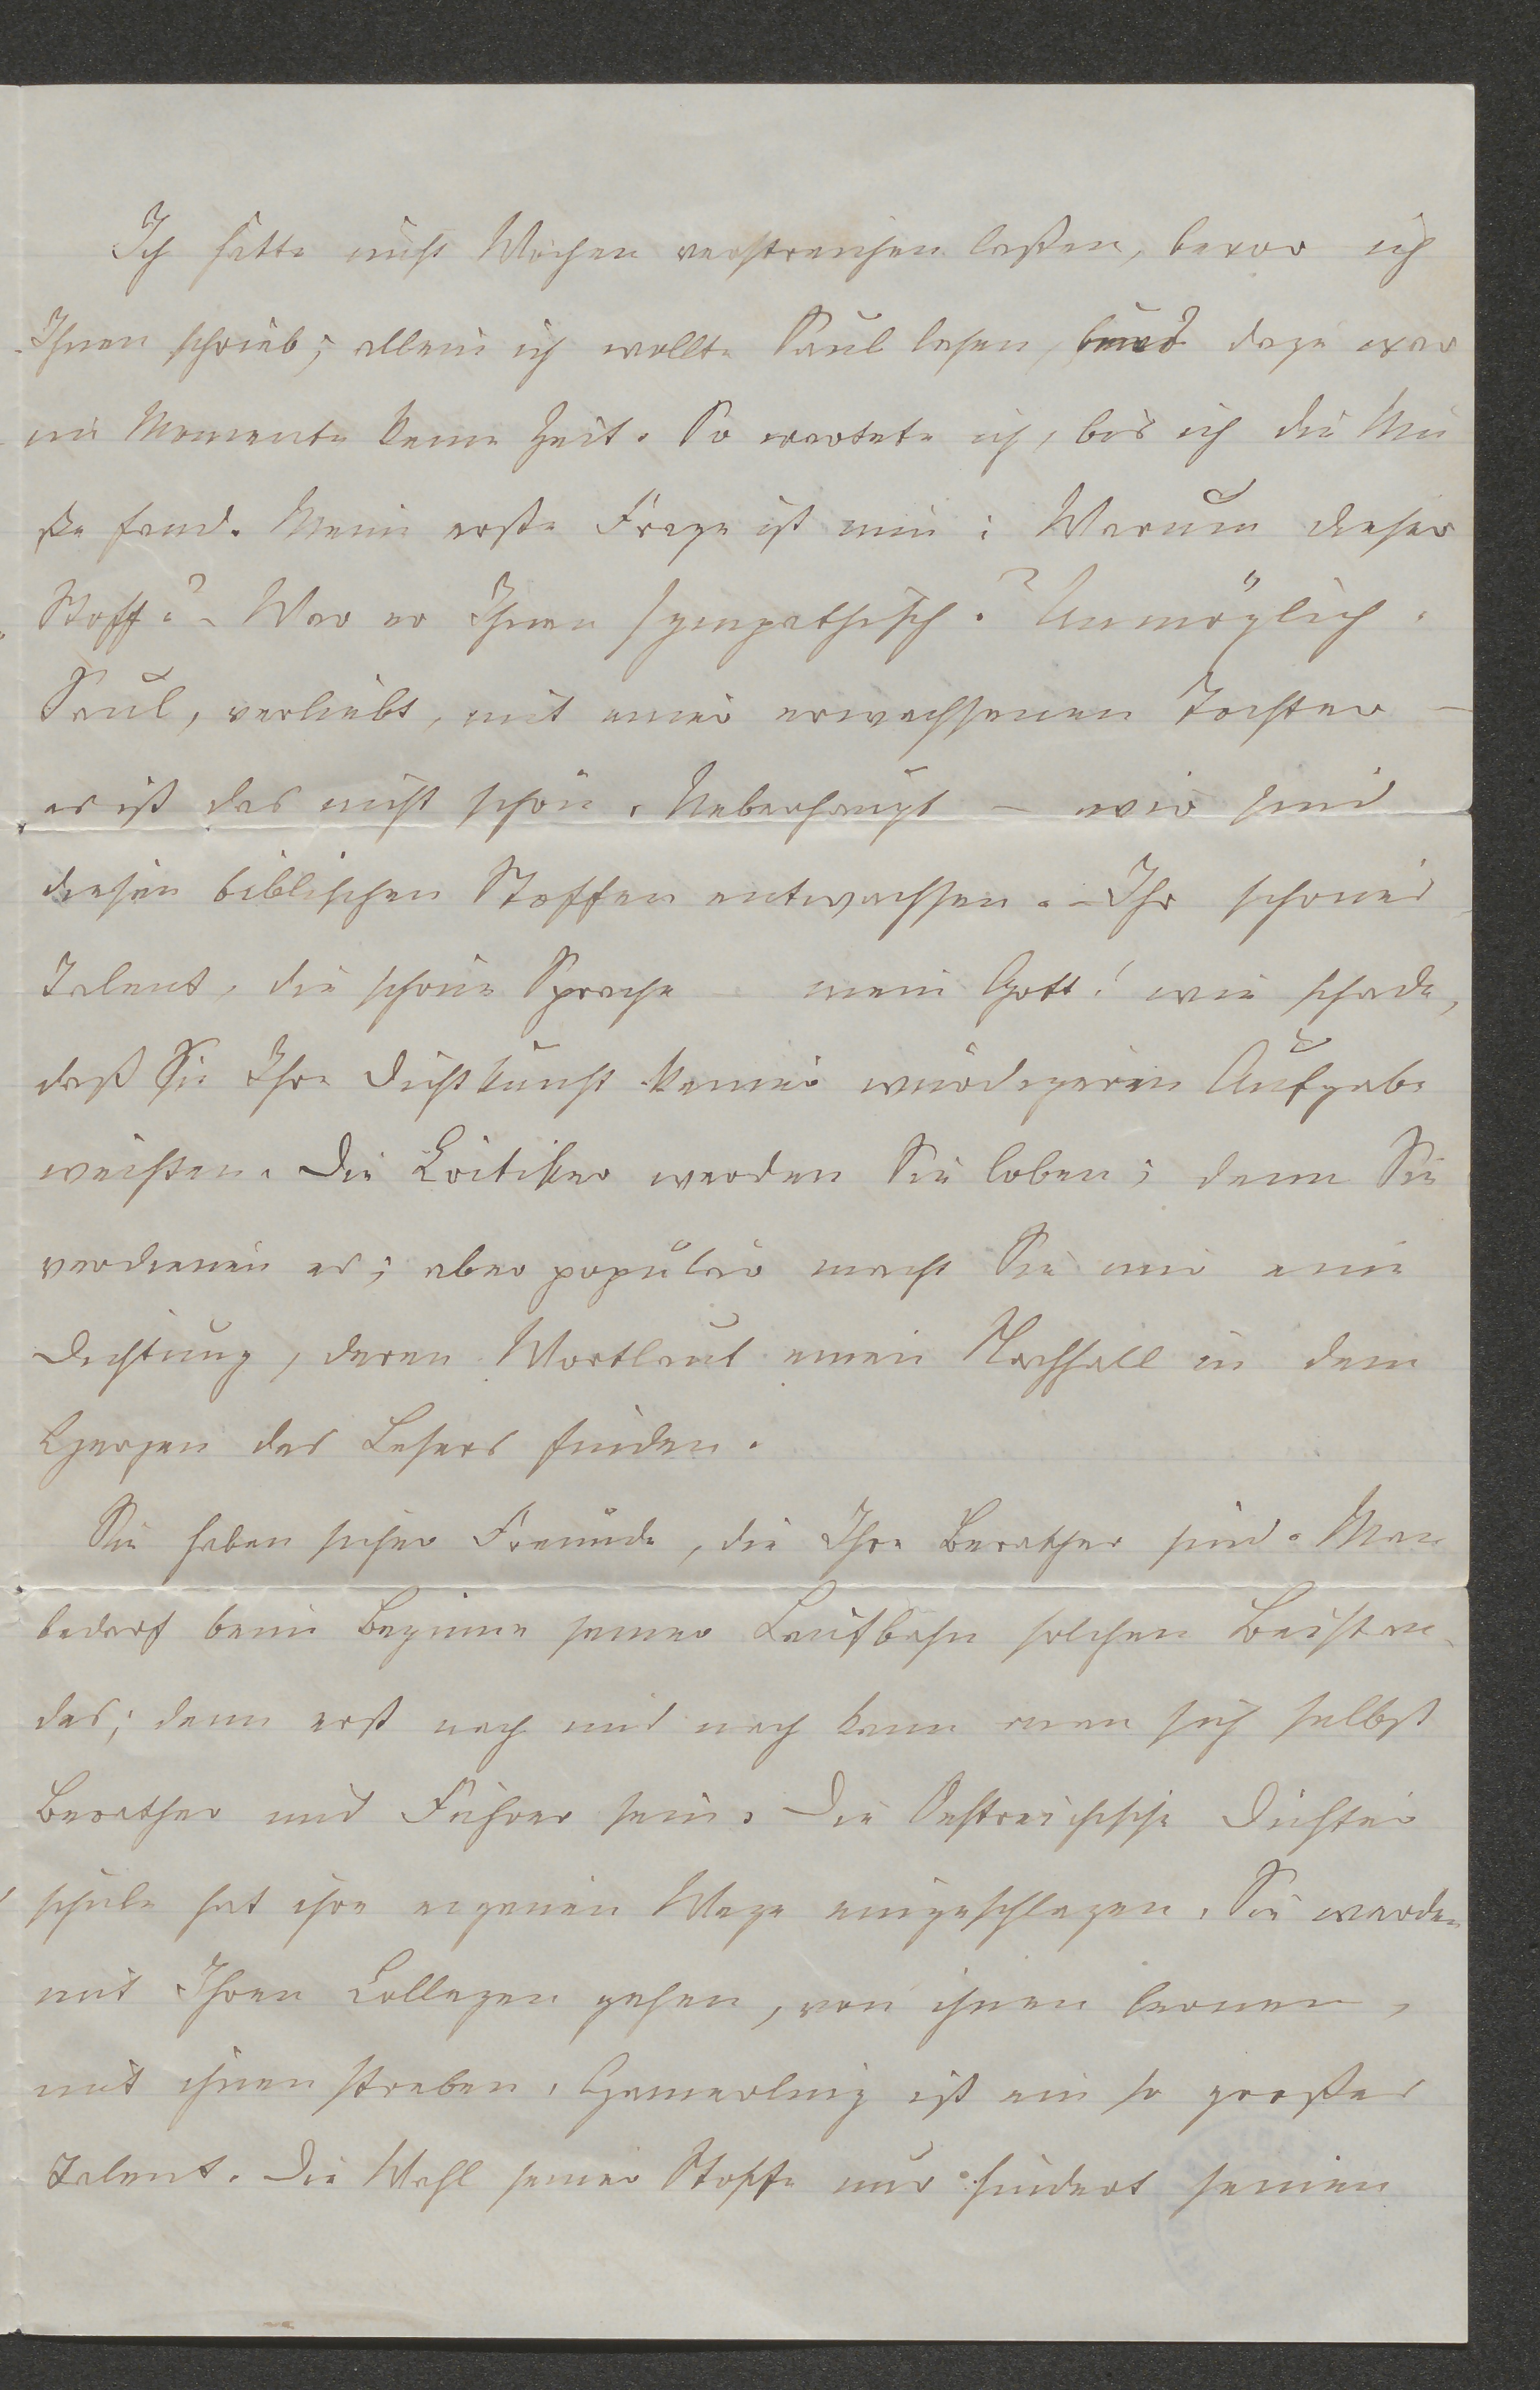 Ich hätte nicht Wochen verstreichen laßen, bevor ich
Ihnen schrieb; allein ich wollte Saul lesen, und dazu war
im Momente keine Zeit. So wartete ich, bis ich die Mu
ße fand. Meine erste Frage ist nun: Warum dieser
Stoff? – War er Ihnen sympathisch? Unmöglich.
Saul, verliebt, mit einer erwachsenen Tochter –
es ist das nicht schön. Ueberhaupt – wir sind
diesen biblischen Stoffen entwachsen. – Ihr schönes
Talent, die schöne Sprache mein Gott! wie schade,
daß Sie Ihre Dichtkunst keiner würdigeren Aufgabe
weihten. Die Critiker werden Sie loben; denn Sie
verdienen es; aber populär macht Sie nur eine
Dichtung, deren Wortlaut einen Nachhall in dem
Herzen des Lesers finden.
Sie haben sicher Freunde, die Ihre Berather sind. Man
bedarf beim Beginne seiner Laufbahn solchen Beistan
des; denn erst nach und nach kann man sich selbst
Berather und Führer sein. Die Oestreichische Dichter
schule hat ihre eigenen Wege eingeschlagen. Sie werden
mit Ihren Collegen gehen, von ihnen lernen,
mit ihnen streben. Hamerling ist ein so großes
Talent. Die Wahl seiner Stoffe nur hindert seinen